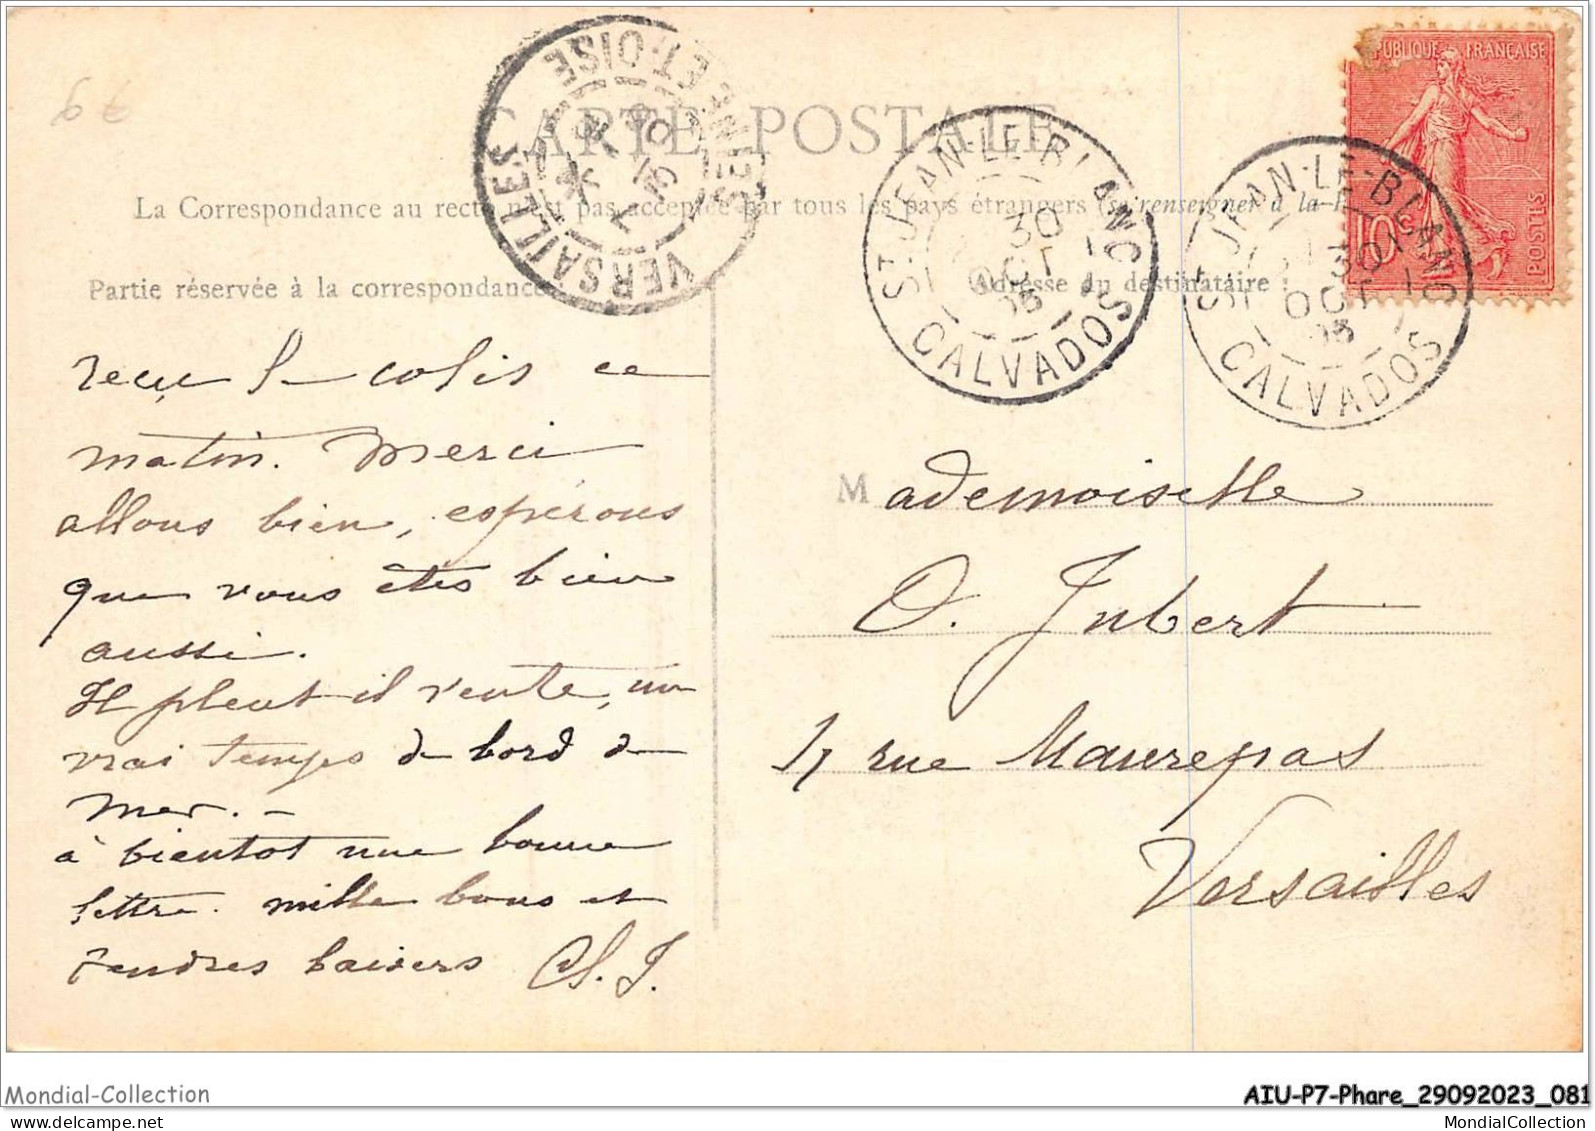 6 €
CARTE POSTALE
La Correspondance au recto n'est pas acceptée par tous les pays étrangers (se renseigner à la
Partie réservée à la correspondance
Adresse du destinataire
VERSAILLES SEINE-ET-OISE
ST-JEAN-LE-BLANC
30
OCT
05
CALVADOS
ST-JEAN-LE-BLANC
30
OCT
05
CALVADOS
RÉPUBLIQUE FRANÇAISE
10c
POSTES
reçu le colis ce
matin. Merci
allons bien, espérons
que vous êtes bien
aussi.
Il pleut il vente, un
vrai temps de bord de
mer. -
à bientot une bonne
lettre. mille bons et
tendres baisers
J.
Mademoiselle
O. Jubert
17 rue Maurepas
Versailles
Mondial-Collection
AIU-P7-Phare_29092023_081
delcampe.net
MondialCollection